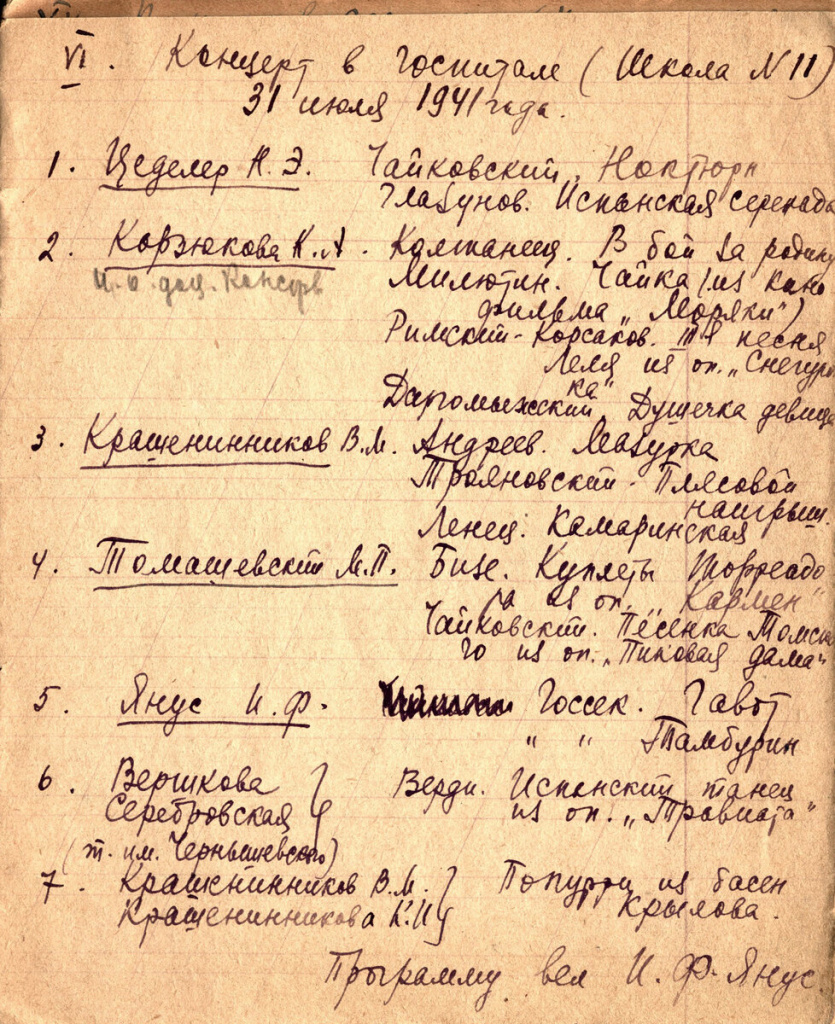 VI. Концерт в госпитале (Школа N 11)
31 июля 1941 года.
1. Цеделер Н. Э. Чайковский. Ноктюрн
Глазунов. Испанская серенада
2. Корзюкова К. А. Колтанец. В бой за родину
и. о. доц. Консерв Милютин. Чайка (из кино
фильма „Моряки")
Римский-Корсаков. III я песня
Леля из оп. „Снегуроч
ка"
Даргомыжский. Душечка девица
3. Крашенинников В. М. Андреев. Мазурка
Трояновский - Плясовой
наигрыш.
Ленец. Камаринская
4. Томашевский М. П. Бизе. Куплеты Торреадо
ра из оп. „Кармен"
Чайковский. Песенка Томско
го из оп. „Пиковая дама"
5. Янус И. Ф. Госсек. Гавот
" " Тамбурин
6. Вершкова } Верди. Испанский танец
Серебровская из оп. „Травиата"
(т. им. Чернышевского)
7. Крашенинников В. М. } Попурри из басен
Крашенинникова К. И Крылова.
Программу вел И. Ф. Янус